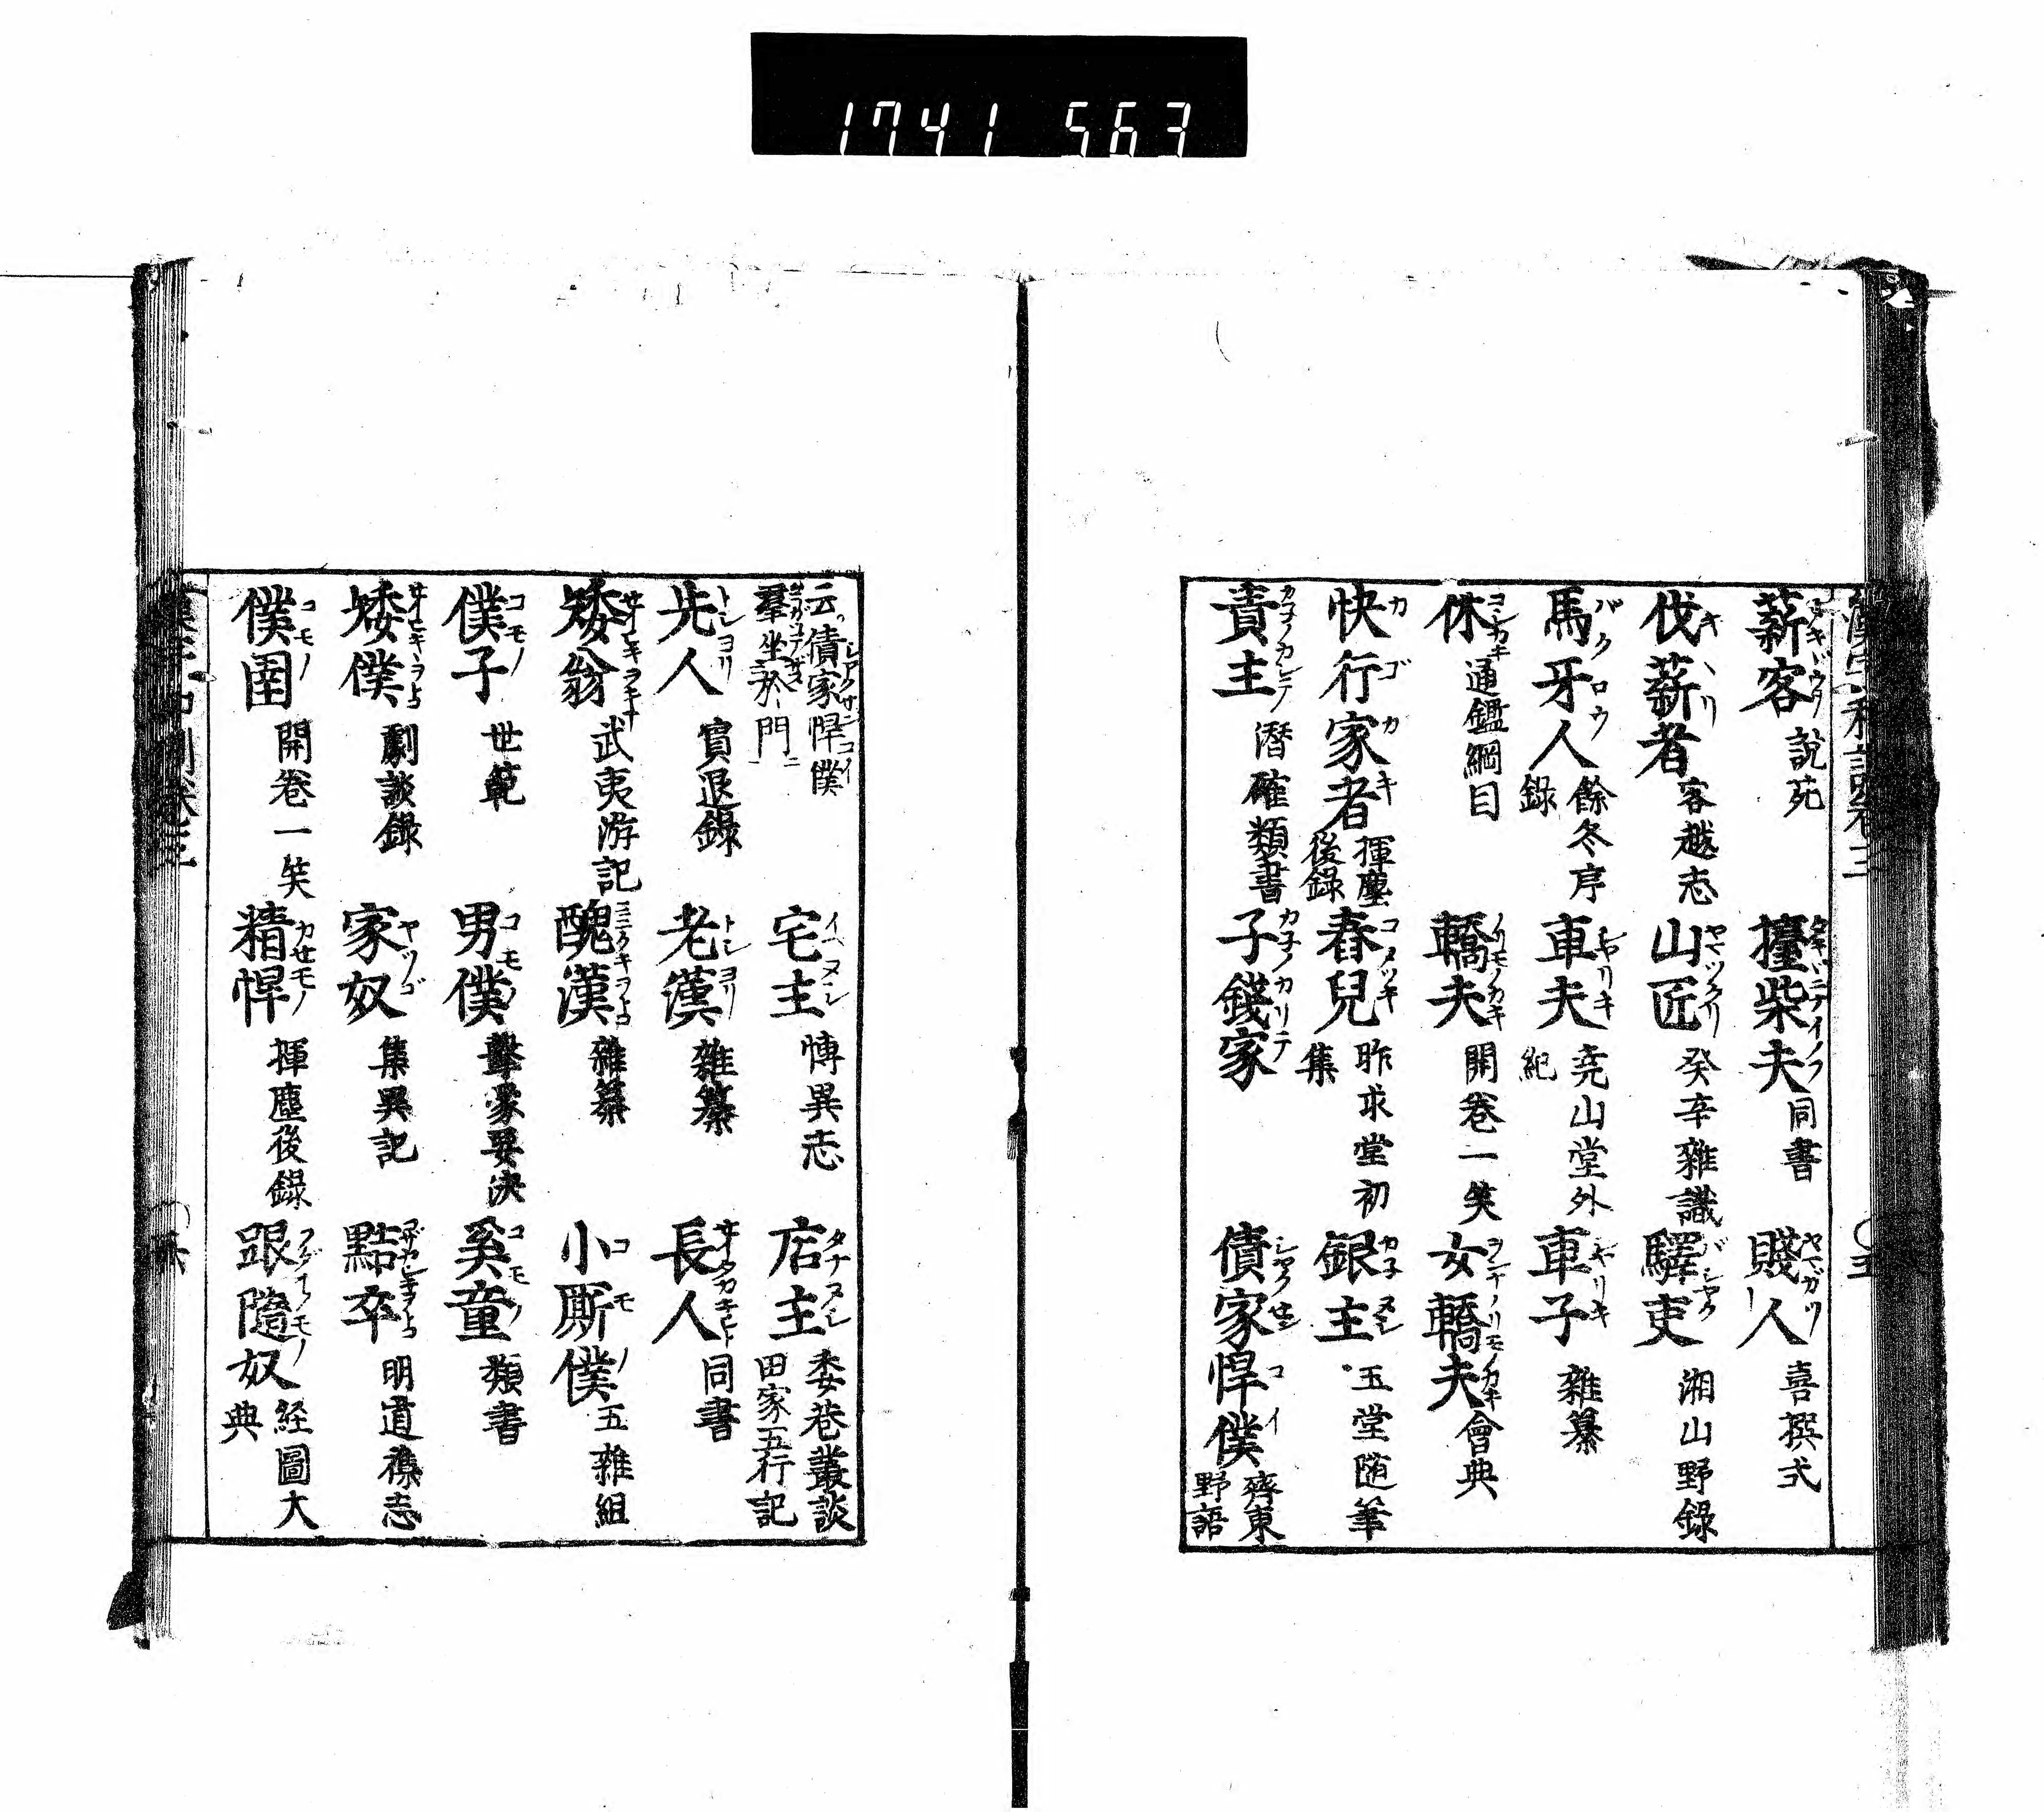 1741 563
薪客 説苑 擡柴夫 同書 賤人 喜撰式
伐薪者 客越志 山匠 癸辛雜識 驛吏 湘山野錄
馬牙人 餘冬序錄 車夫 尭山堂外紀 車子 雜纂
休 通鑑綱目 轎夫 開卷一笑 女轎夫 會典
快行家者 揮塵後錄 舂兒 昨求堂初集 銀主 玉堂随筆
責主 濳確類書 子錢家 債家悍僕 齊東野語
云債家悍僕羣坐於門 宅主 博異志 店主 委巷叢談 田家五行記
先人 賔退錄 老漢 雜纂 長人 同書
矮翁 武夷游記 醜漢 雜纂 小厮僕 五雜組
僕子 世範 男僕 擊蒙要决 奚童 類書
矮僕 劇談錄 家奴 集異記 點卒 明道襍志
僕圉 開卷一笑 精悍 揮塵後錄 跟隨奴 経圖大典